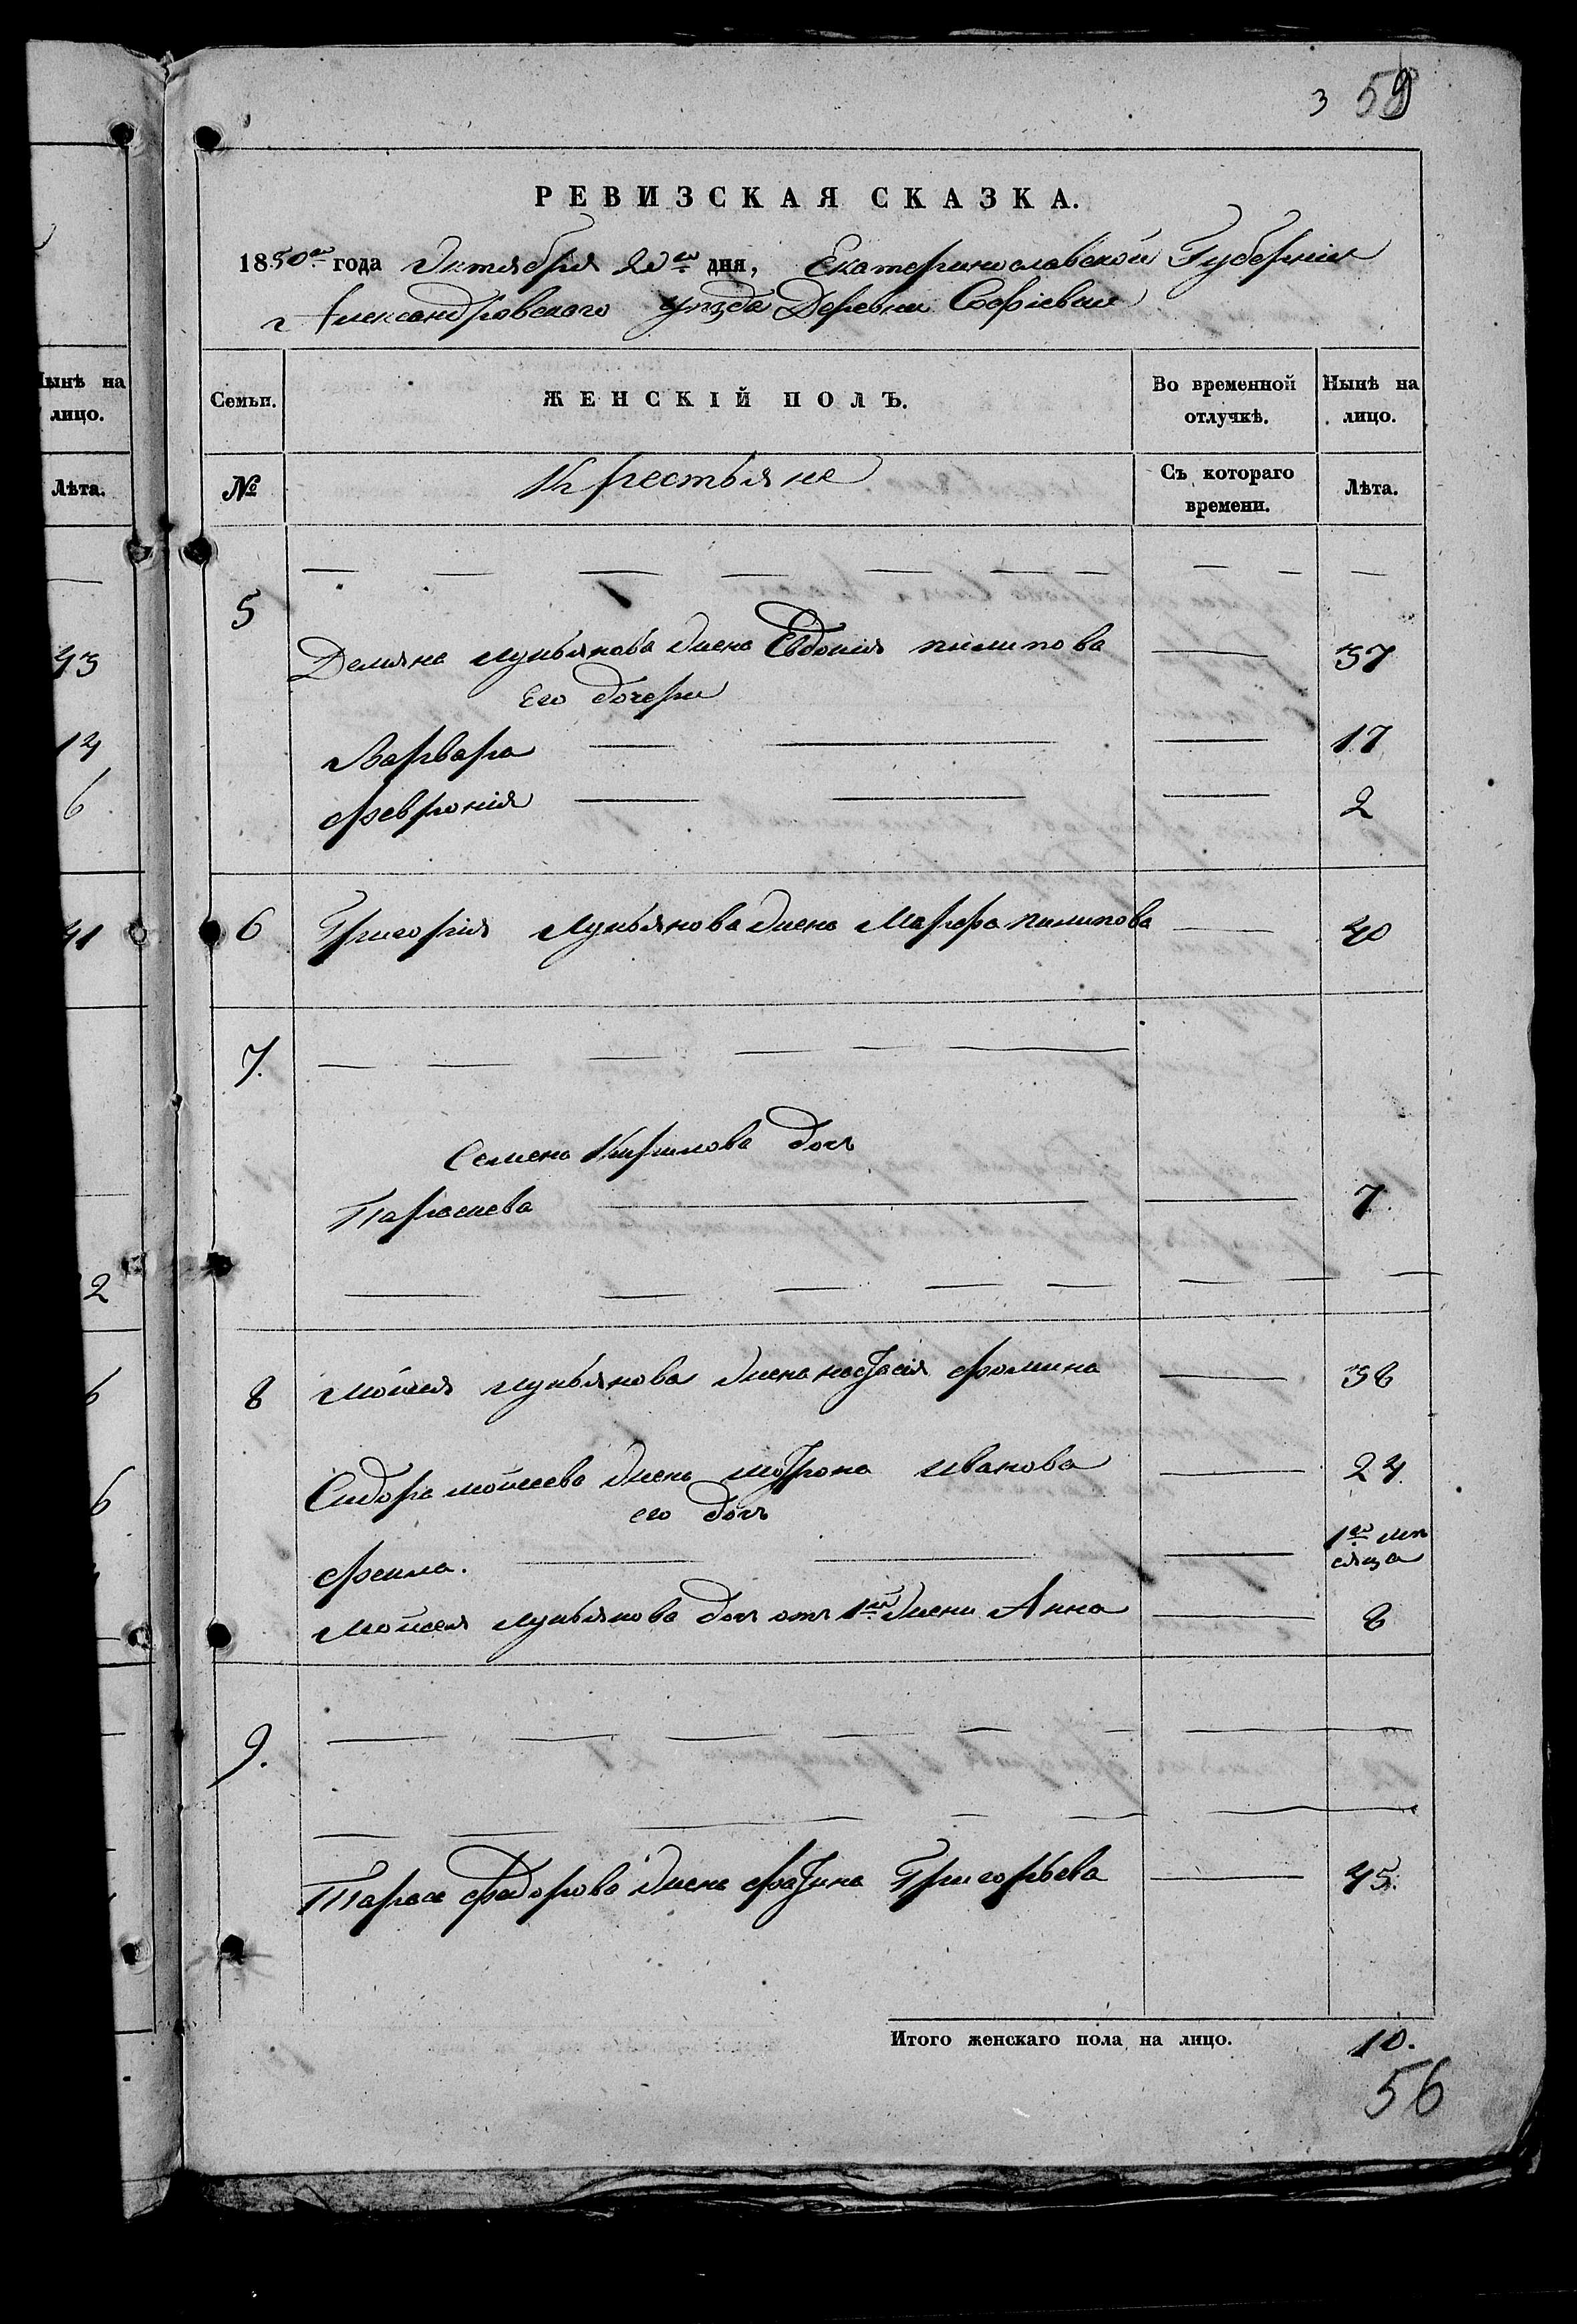 3 59
РЕВИЗСКАЯ СКАЗКА.
1850го года Октября 20го дня, Екатеринославской Губернии
Александровского уезда Деревни Софіевки
Нынѣ на
лицо.
Лѣта.
43
14
6
41
2
6
6
Семьи. ЖЕНСКІЙ ПОЛЪ. Во временной отлучкѣ. Нынѣ на лицо.
№ Крестьяне Съ котораго времени. Лѣта.
5
Демяна лукьянова жена Евдокия пилипова 37
Его дочери
Варвара 17
Феврония 2
6 Григория Лукьянова жена Марфа пилипова 40
7.
Семена Кирилова дочь
Параскева 7
8 мойсея лукьянова жена настасия фомина 38
Сидора мойсеева жена мотрона иванова 24
его дочь
1го мѣсяца
Мойсея лукьянова доч отъ 1й жени Анна 8
9.
Тараса Федорова жена Григорьева 45.
Итого женскаго пола на лицо. 10.
56